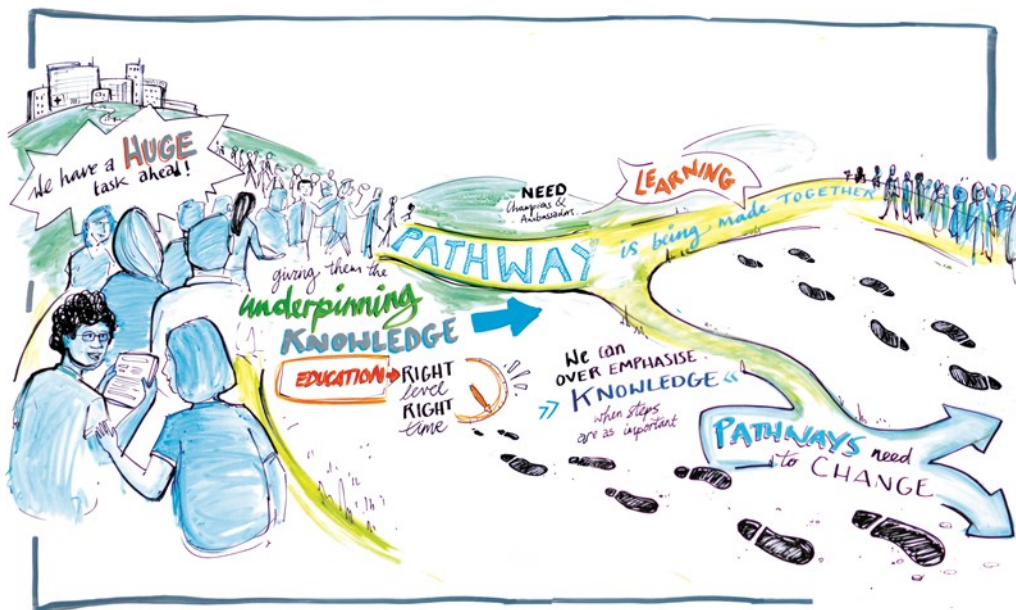 We have a HUGE
task ahead!
NEED
Champions &
Ambassadors
LEARNING
PATHWAY is being made TOGETHER
giving them the
underpinning
KNOWLEDGE
EDUCATION RIGHT
level
RIGHT
time
We can
OVER EMPHASISE
KNOWLEDGE
when steps
are as important
PATHWAYS need
to CHANGE